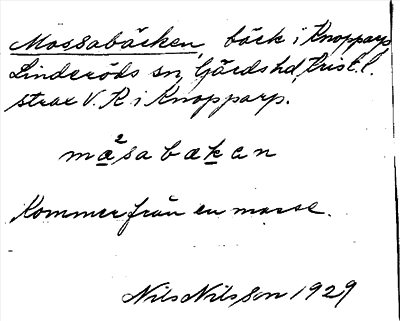 Mossabäcken, bäck i Knopparp,
Linderöds sn, Gärds hd, Krist. l.
strax V. R i Knopparp.
ma²sabakan
Kommer från en mosse.
Nils Nilsson 1929